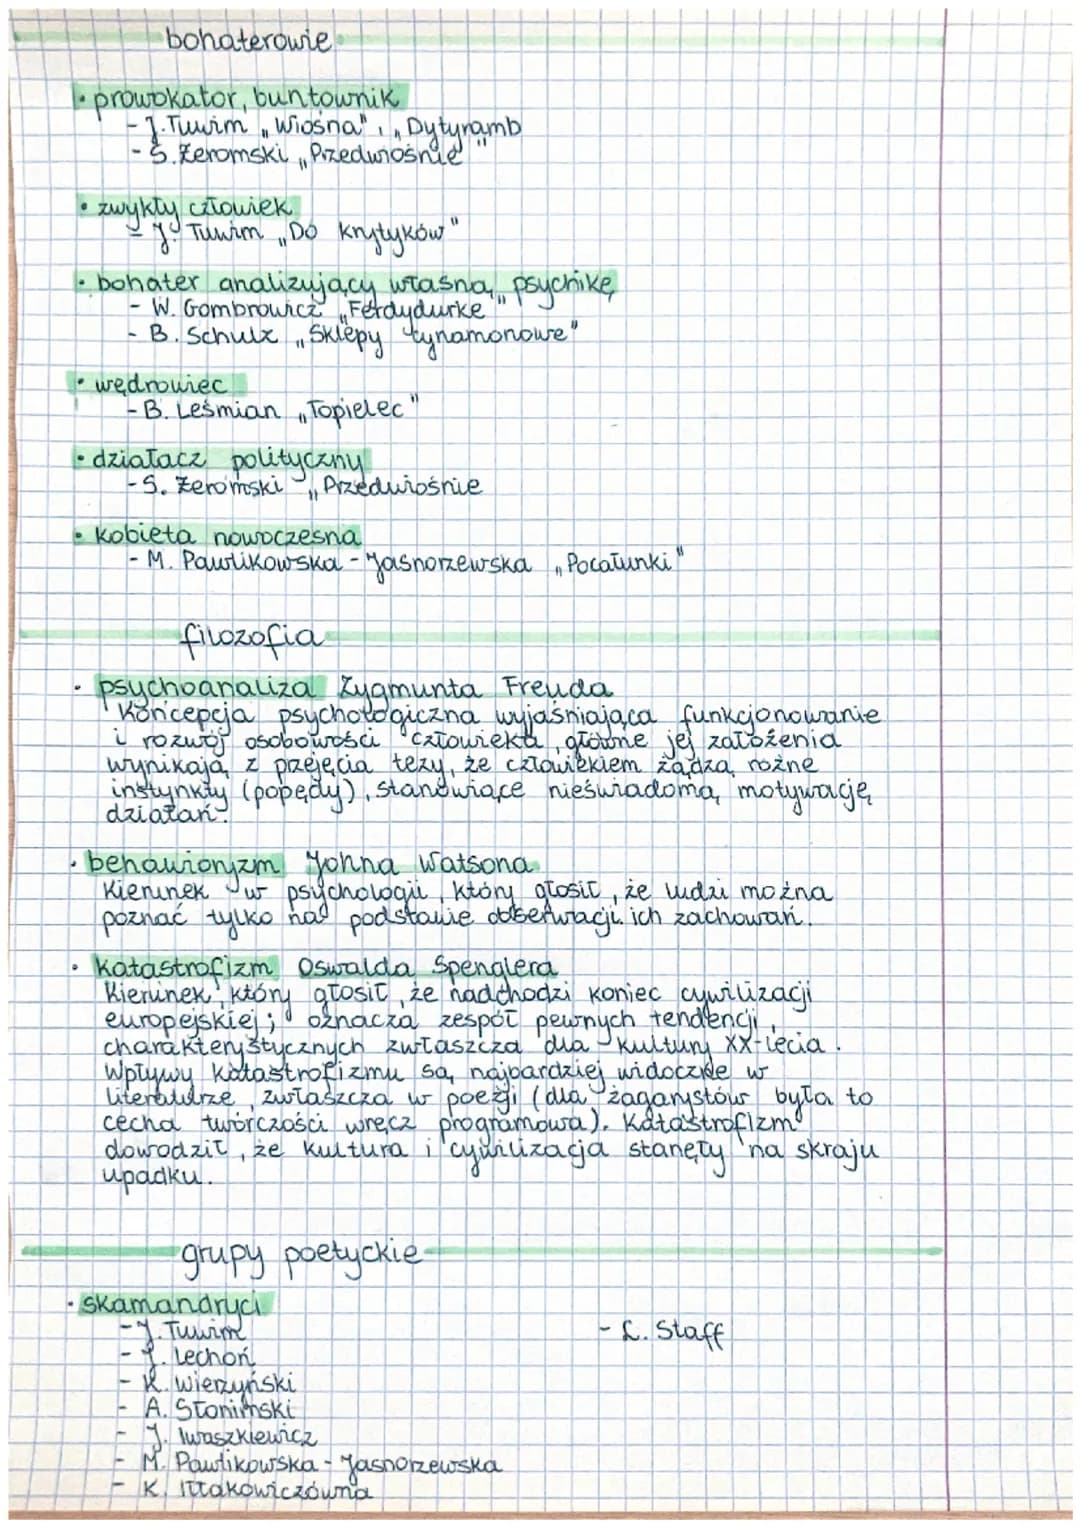 bohaterowie
• prowokator, buntownik
- J. Tuwim „Wiosna", „Dytyramb"
- S. Żeromski „Przedwiośnie"
• zwykły człowiek
- J. Tuwim „Do krytyków"
• bohater analizujący własną psychikę
- W. Gombrowicz „Ferdydurke"
- B. Schulz „Sklepy cynamonowe"
• wędrowiec
- B. Leśmian „Topielec"
• działacz polityczny
- S. Żeromski „Przedwiośnie
• kobieta nowoczesna
- M. Pawlikowska - Jasnorzewska „Pocałunki"
filozofia
• psychoanaliza Zygmunta Freuda
Koncepcja psychologiczna wyjaśniająca funkcjonowanie
i rozwój osobowości człowieka, główne jej założenia
wynikają z przejęcia tezy, że człowiekiem żądzą różne
instynkty (popędy), stanowiące nieświadomą motywację
działań.
• behawioryzm Johna Watsona
Kierunek w psychologii, który głosił, że ludzi można
poznać tylko na podstawie obserwacji ich zachowań.
• katastrofizm Oswalda Spenglera
Kierunek, który głosił, że nadchodzi koniec cywilizacji
europejskiej; oznacza zespół pewnych tendencji,
charakterystycznych zwłaszcza dla kultury XX-lecia.
Wpływy katastrofizmu są najbardziej widoczne w
literaturze, zwłaszcza w poezji (dla żagarystów była to
cecha twórczości wręcz programowa). Katastrofizm
dowodził, że kultura i cywilizacja stanęły na skraju
upadku.
grupy poetyckie
• skamandryci
- J. Tuwim - L. Staff
- J. Lechoń
- K. Wierzyński
- A. Słonimski
- J. Iwaszkiewicz
- M. Pawlikowska - Jasnorzewska
- K. Iłłakowiczówna